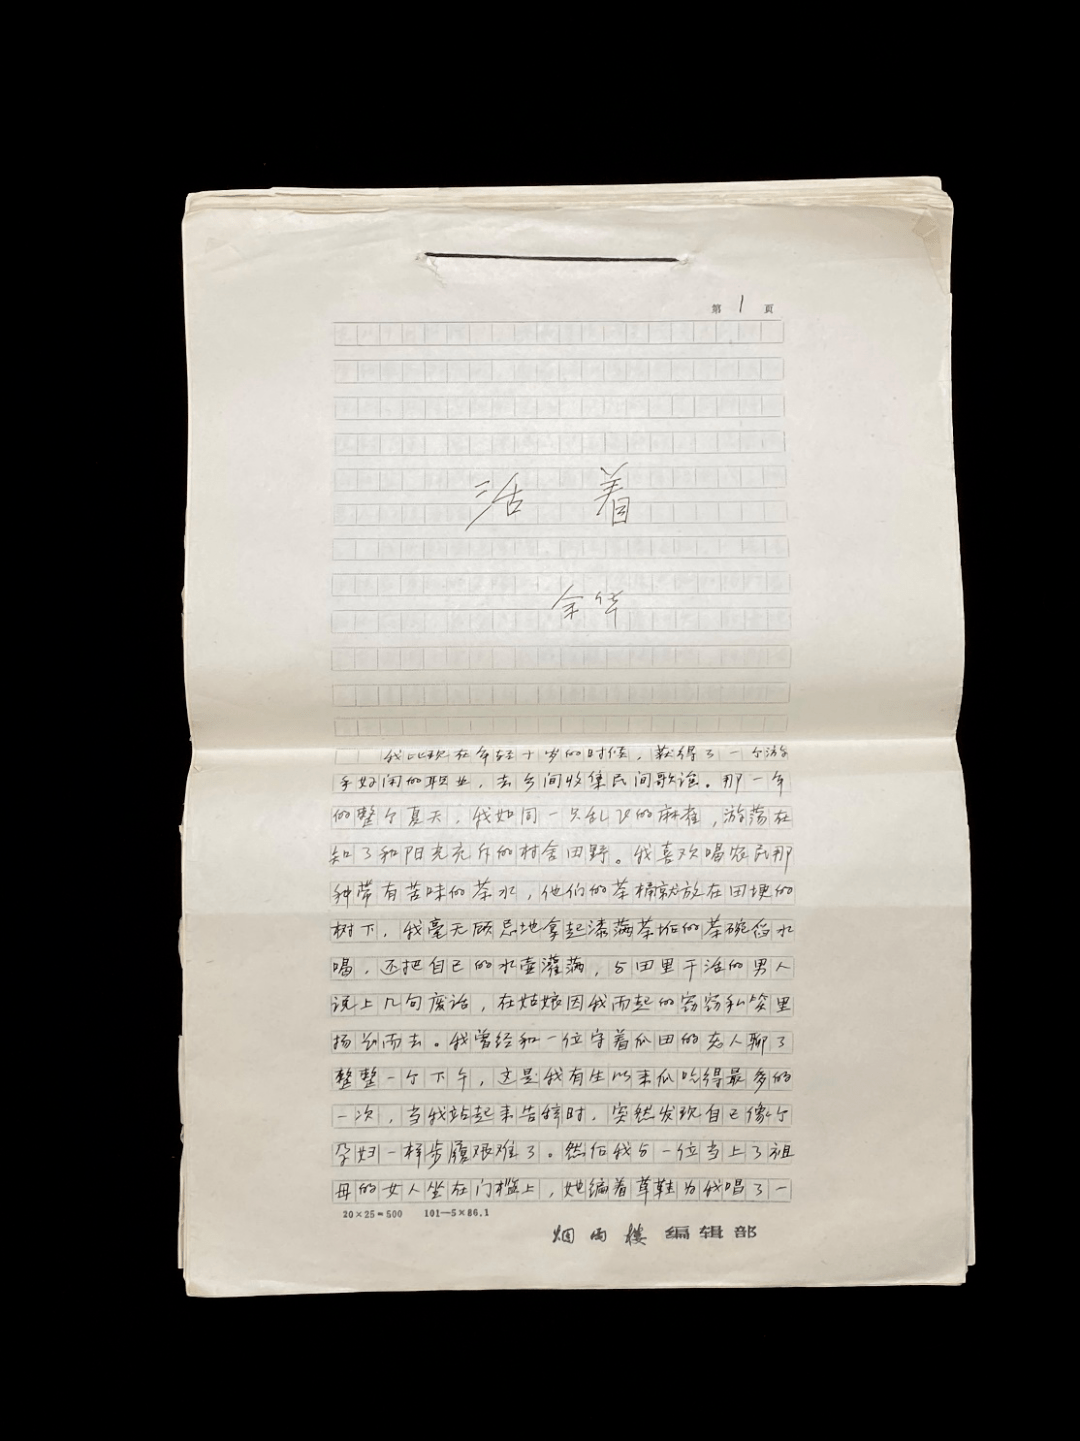 第 1 页
活着
余华
我比现在年轻十岁的时候，获得了一个游
手好闲的职业，去乡间收集民间歌谣。那一年
的整个夏天，我如同一只乱飞的麻雀，游荡在
知了和阳光充斥的村舍田野。我喜欢喝农民那
种带有苦味的茶水，他们的茶桶就放在田埂的
树下，我毫无顾忌地拿起漆满茶垢的茶碗舀水
喝，还把自己的水壶灌满，与田里干活的男人
说上几句废话，在姑娘因我而起的窃窃私笑里
扬长而去。我曾经和一位守着瓜田的老人聊了
整整一个下午，这是我有生以来瓜吃得最多的
一次，当我站起来告辞时，突然发现自己像个
孕妇一样步履艰难了。然后我与一位当上了祖
母的女人坐在门槛上，她编着草鞋为我唱了一
20×25=500 101—5×86.1
烟雨楼编辑部